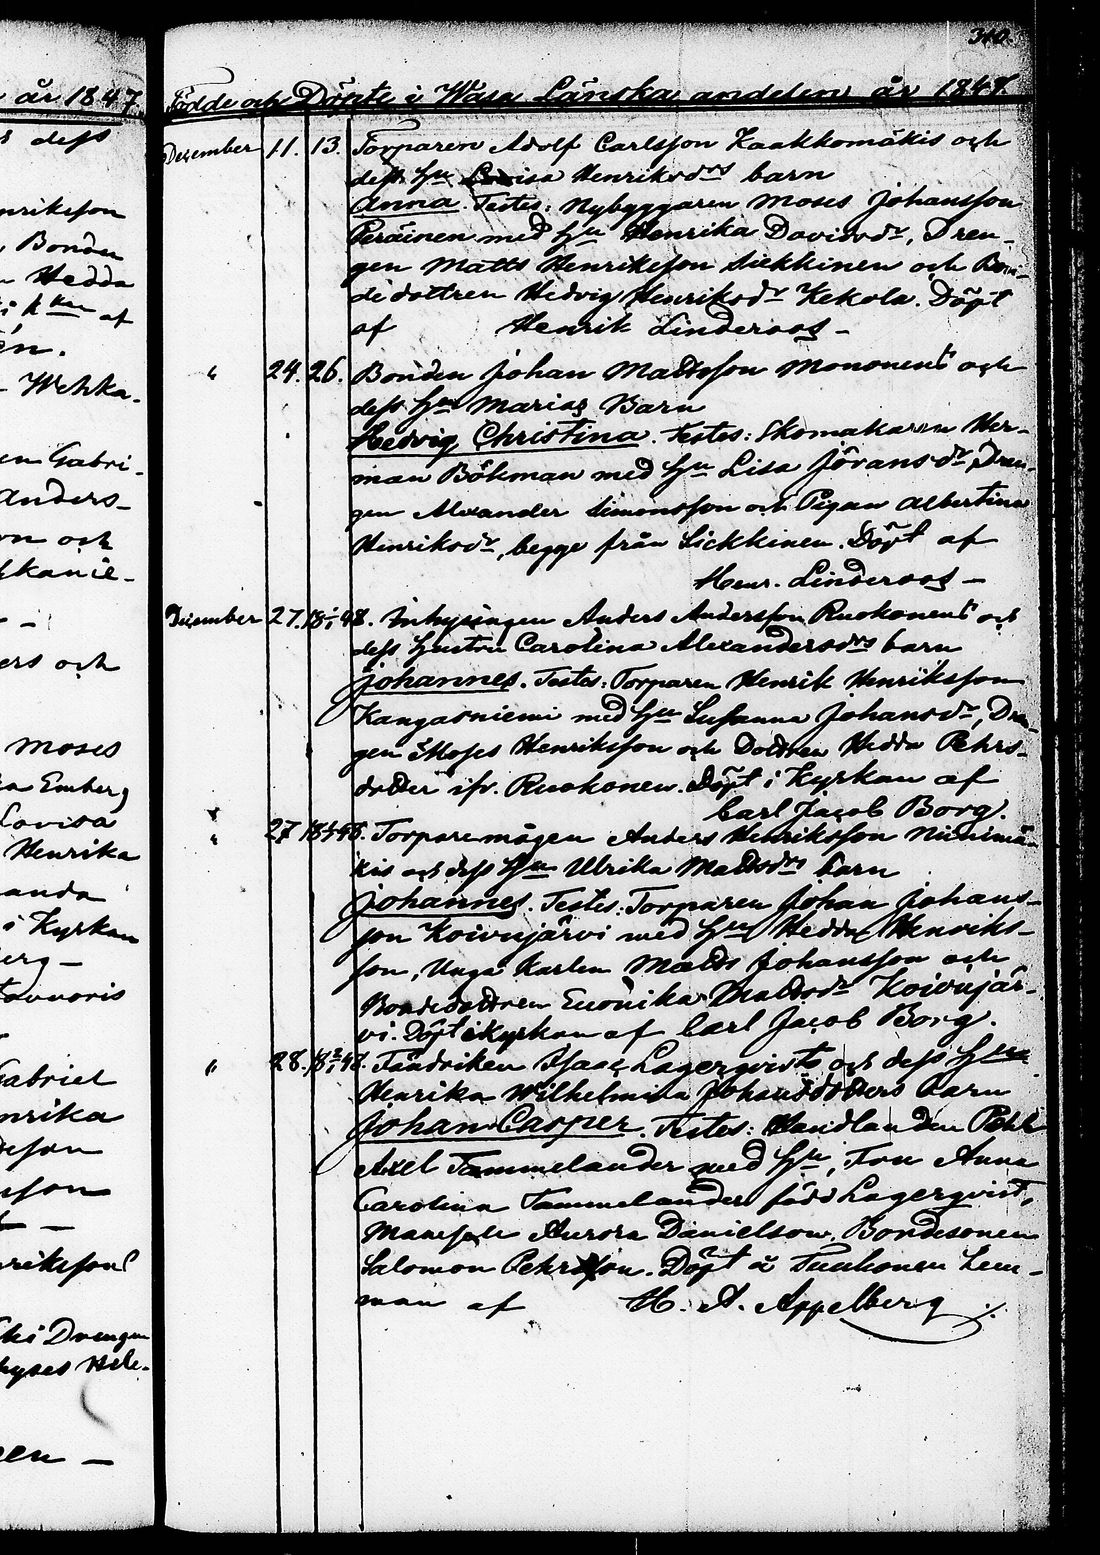 310.
år 1847.
dess
nriksson
, Bonden
Hedda
af
én.
Wehka-
en Gabri-
Anders-
on och
kkanie-
ers och
Moses
ia Emberg
Lovisa
Henrika
anda
i Kyrkan
erg —
Gabriel
nrika
riksson
Drengen
hyses Hele-
Födde och Döpte i Wasa Länska andelen år 1847.
December 11. 13. Torparen Adolf Carlsson Kaakkomäkis och
dess hu Lovisa Henriksdrs barn
Anna. Testes: Nybyggaren Moses Johansson
Peräinen med hu Henrika Davidsdr, Dren-
gen Matts Henriksson Sickkinen och Bon-
dedottren Hedvig Henriksdr Kekola. Döpt
af Henrik Linderoos —
" 24. 26. Bonden Johan Mattsson Mononens och
dess hu Marias Barn
Hedvig Christina. Testes: Skomakaren Her-
man Bökman med hu Lisa Jöransdr, Dren-
gen Alexander Simonsson och Pigan Albertina
Henriksdr, begge från Sickkinen. Döpt af
Henr. Linderoos —
December 27. 18 48. Inhysingen Anders Andersson Ruokonens och
dess hustru Carolina Alexandersdrs barn
Johannes. Testes: Torparen Henrik Henriksson
Kangasniemi med hu Susanna Johansdr, Dren-
gen Moses Henriksson och Dottren Hedda Pehrs-
dotter ifr. Ruokonen. Döpt i Kyrkan af
Carl Jacob Borg.
" 27 18 48. Torparemågen Anders Henriksson Niinimä-
kis och dess hu Ulrika Mattsdrs barn
Johannes. Testes: Torparen Johan Johans-
son Koivujärvi med hu Hedda Henriks-
son, Unga Karlen Matts Johansson och
Bondedottren Euonika Mattsdr Koivujär-
vi. Döpt i Kyrkan af Carl Jacob Borg.
" 28. 18 48. Fändriken Isaac Lagerqvists och dess hus
Henrika Wilhelmina Johansdotters barn
Johan Casper. Testes: Handlanden Pehr
Axel Tammelander med hu, Fru Anna
Carolina Tammelander född Lagerqvist,
Mamsele Aurora Danielson, Bondesonen
Salomon Pehrsson. Döpt å Lem-
man af H. A. Appelberg ./.